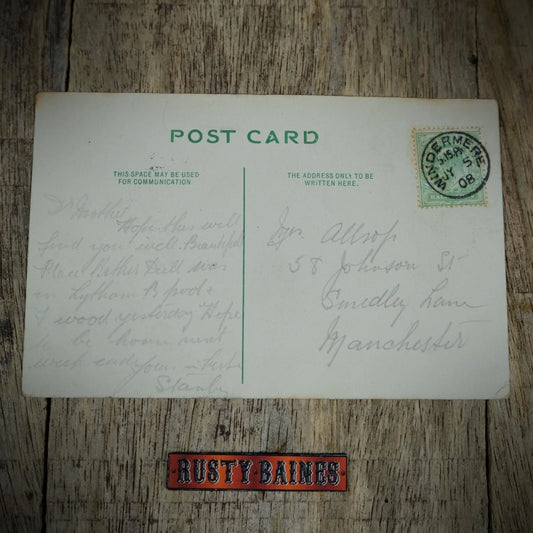 POST CARD
THIS SPACE MAY BE USED
FOR COMMUNICATION.
THE ADDRESS ONLY TO BE
WRITTEN HERE.
WINDERMERE
JY 5
08
Hope this will
find you well. Beautiful
Place Rather Dull was
in Lytham B pool &
wood yesterday Hope
to be home next
week end yours
Stanley
Allsop
58 Johnson St
Smedley Lane
Manchester
RUSTY BAINES